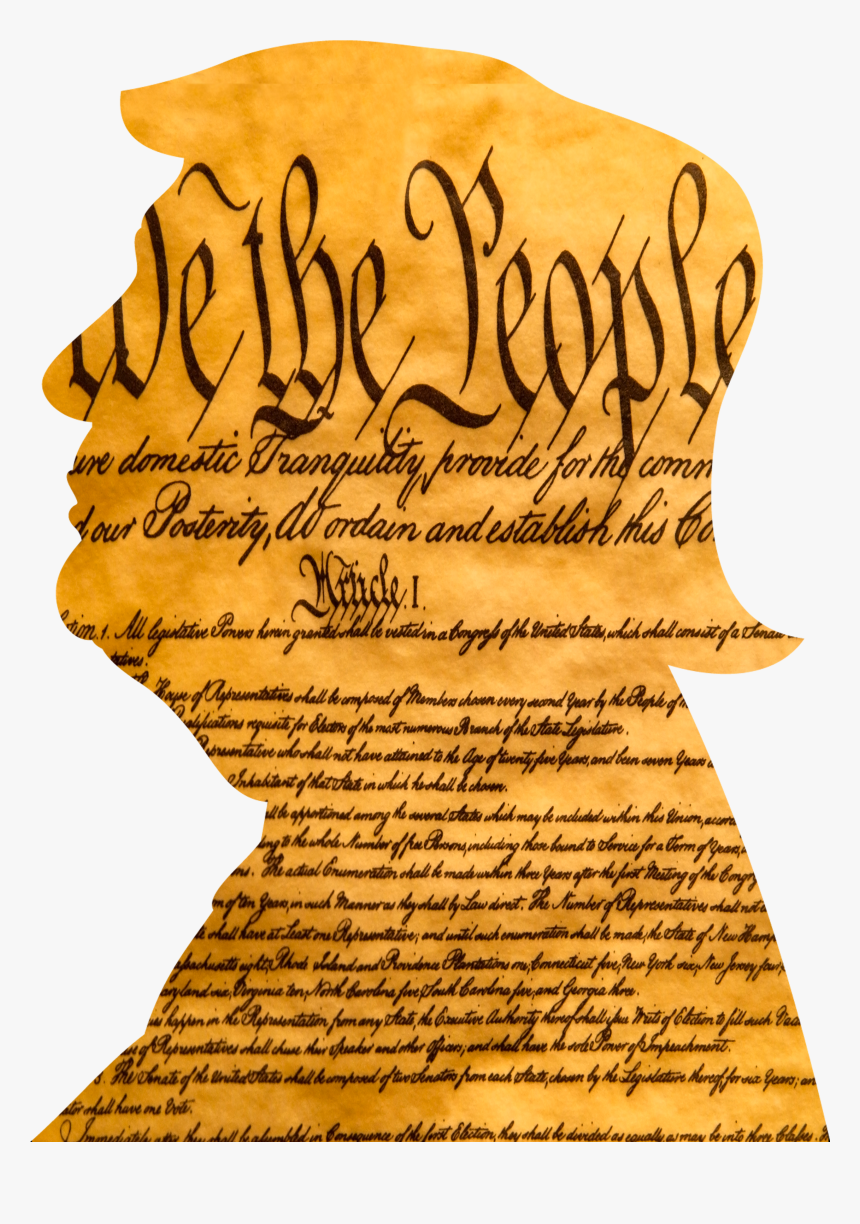 We the People
ure domestic Tranquility, provide for the comm
d our Posterity, do ordain and establish this Co
Article. I.
ction. 1. All legislative Powers herein granted shall be vested in a Congress of the United States, which shall consist of a Senate
tatives.
House of Representatives shall be composed of Members chosen every second Year by the People of
Qualifications requisite for Electors of the most numerous Branch of the State Legislature.
Representative who shall not have attained to the Age of twenty five Years, and been seven Years
Inhabitant of that State in which he shall be chosen.
ll be apportioned among the several States which may be included within this Union, accord
ing to the whole Number of free Persons, including those bound to Service for a Term of Years,
ons. The actual Enumeration shall be made within three Years after the first Meeting of the Congr
m of ten Years, in such Manner as they shall by Law direct. The Number of Representatives shall not
te shall have at Least one Representative; and until such enumeration shall be made, the State of New Hamp
assachusetts eight, Rhode Island and Providence Plantations one, Connecticut five, New York six, New Jersey four,
aryland six, Virginia ten, North Carolina five, South Carolina five, and Georgia three.
ies happen in the Representation from any State, the Executive Authority thereof shall issue Writs of Election to fill such Vaca
use of Representatives shall chuse their Speaker and other Officers; and shall have the sole Power of Impeachment.
3. The Senate of the United States shall be composed of two Senators from each State, chosen by the Legislature thereof, for six Years; an
ator shall have one Vote.
Immediately after they shall be assembled in Consequence of the first Election, they shall be divided as equally as may be into three Classes.